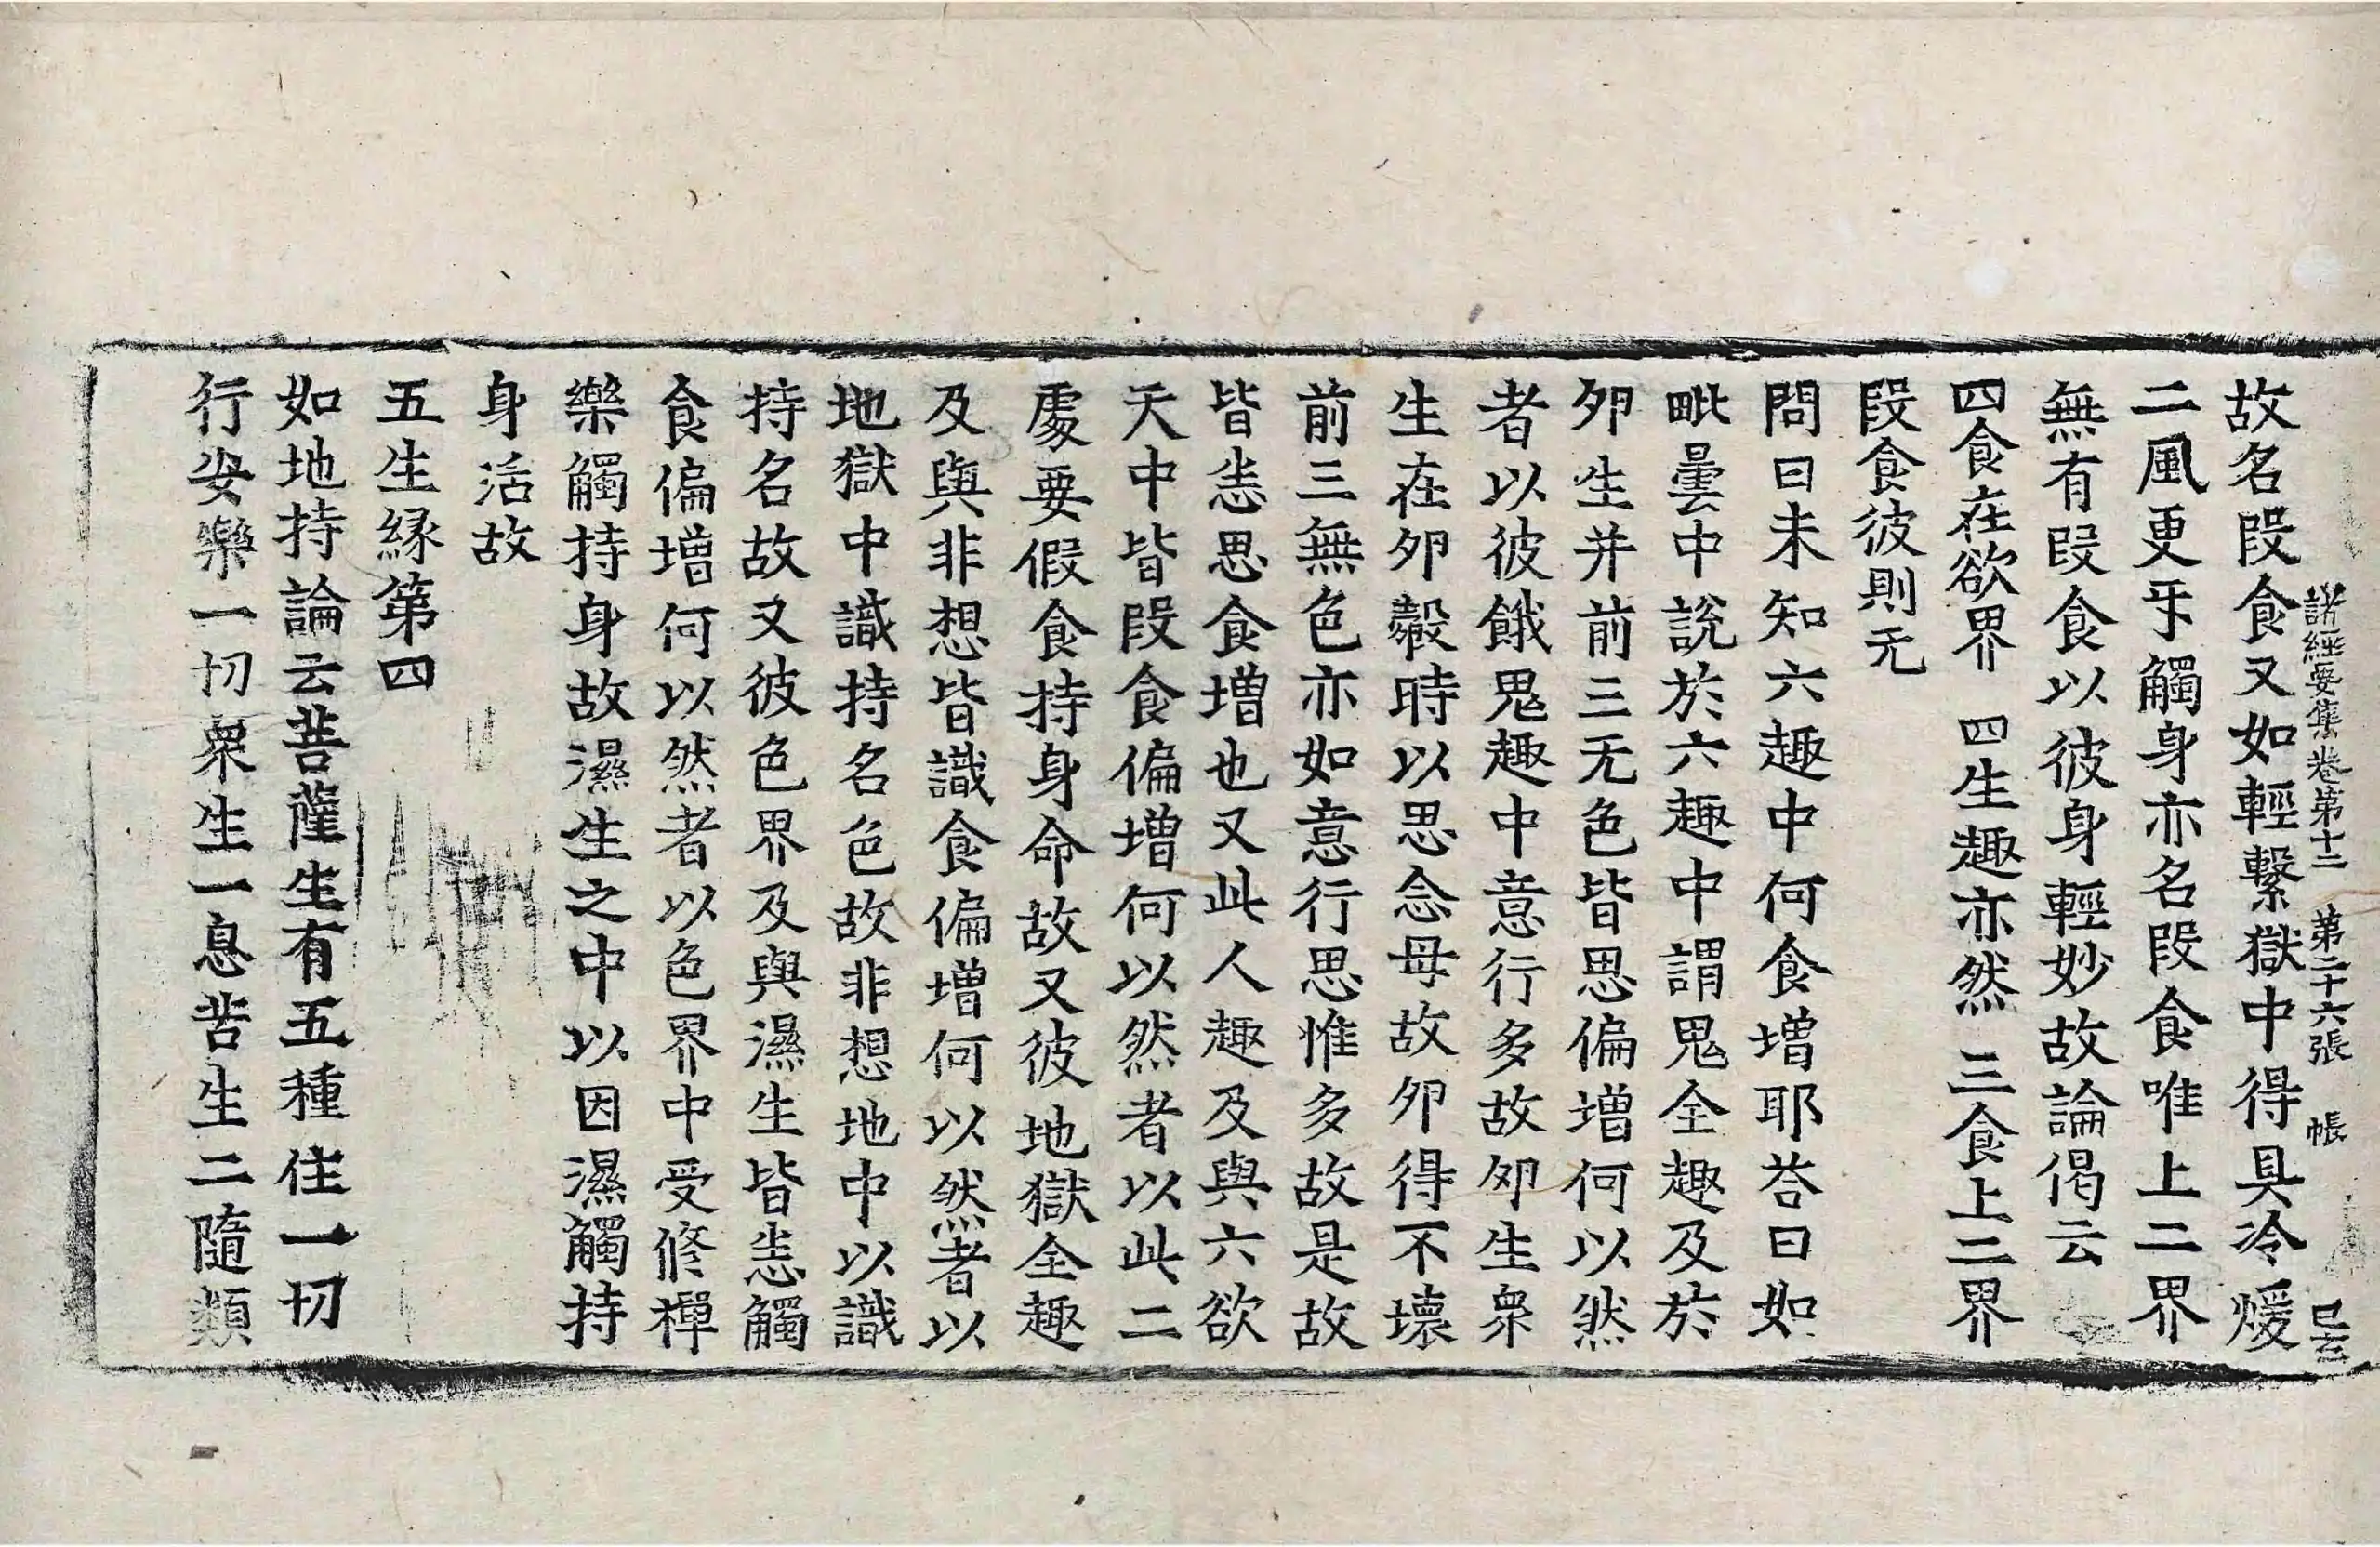 故名段食又如輕繫獄中得具冷煖
諸經要集卷第十二　第二十六張　帳
二風更㸦觸身亦名段食唯上二界
無有段食以彼身輕妙故論偈云
四食在欲界　四生趣亦然　三食上二界
段食彼則无
問曰未知六趣中何食增耶荅曰如
毗曇中說於六趣中謂鬼全趣及於
卵生并前三无色皆思偏增何以然
者以彼餓鬼趣中意行多故卵生衆
生在卵㲉時以思念母故卵得不壞
前三無色亦如意行思惟多故是故
皆恚思食增也又此人趣及與六欲
天中皆段食偏增何以然者以此二
處要假食持身命故又彼地獄全趣
及與非想皆識食偏增何以然者以
地獄中識持名色故非想地中以識
持名故又彼色界及與濕生皆恚觸
食偏增何以然者以色界中受修禪
樂觸持身故濕生之中以因濕觸持
身活故
五生緣第四
如地持論云菩薩生有五種住一切
行安樂一切衆生一息苦生二隨類